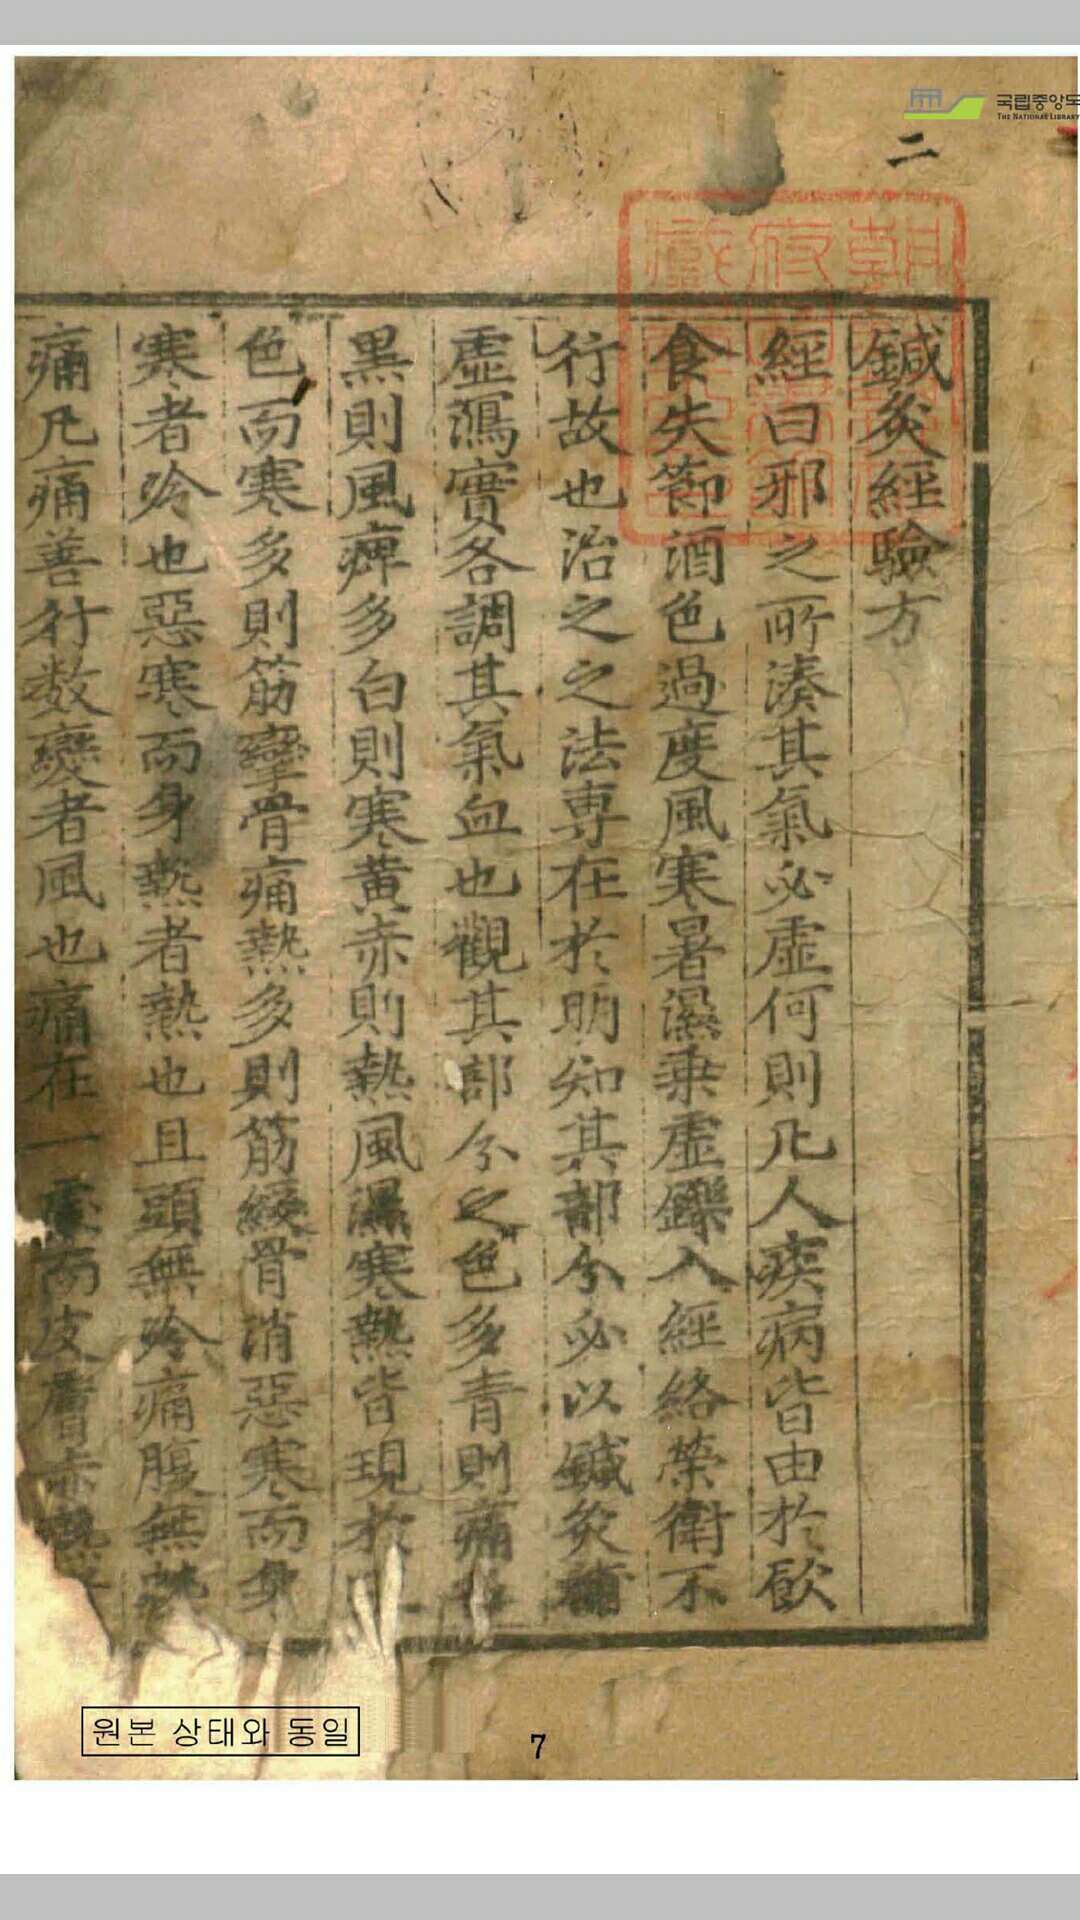 국립중앙도
THE NATIONAL LIBRARY
二
鍼灸經驗方
經曰邪之所湊其氣必虛何則凡人疾病皆由於飮
食失節酒色過度風寒暑濕乘虛鑠入經絡榮衛不
行故也治之之法專在於明知其部分必以鍼灸補
虛瀉實各調其氣血也觀其部分之色多靑則痛多
黑則風痺多白則寒黃赤則熱風濕寒熱皆現於
色而寒多則筋攣骨痛熱多則筋緩骨消惡寒而身
寒者冷也惡寒而身熱者熱也且頭無冷痛腹無熱
痛凡痛善行数變者風也痛在一處而皮膚赤熱
원본 상태와 동일
7